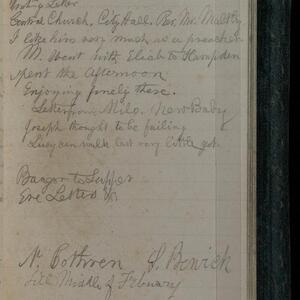 Writing Letter
Central Church, City Hall. Rev. Mr.
I like him very much as a preacher
M. Went with Eliab to Hampden
spent the afternoon
Enjoying finely there.
Letter from Milo. New Baby
Joseph thought to be failing
Lucy can walk last very little
Bangor to Supper
Eve Letters
Mr Bothren S. Berwick
till Middle of February